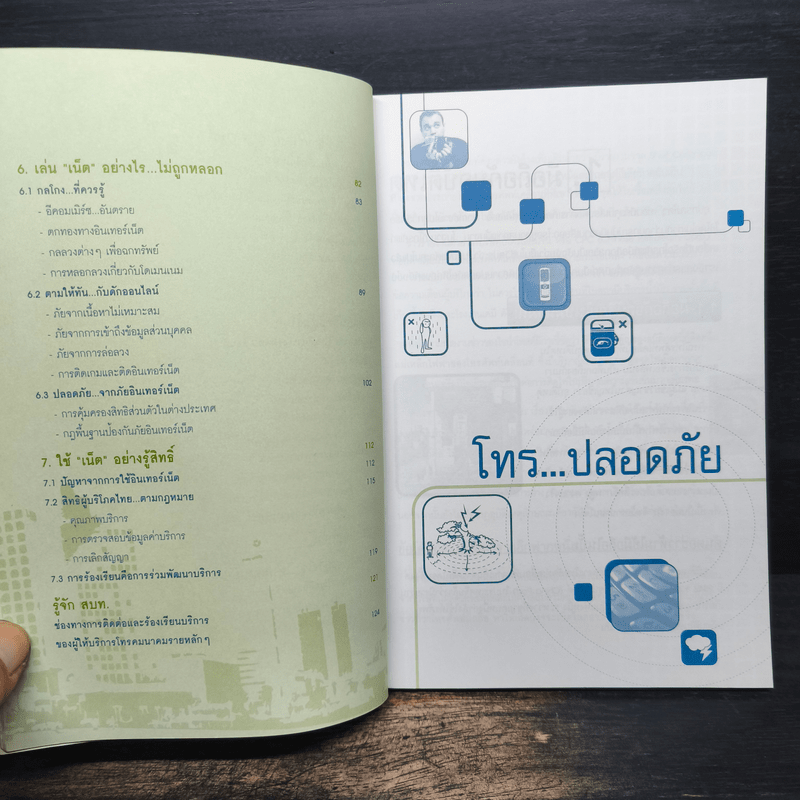 6. เล่น "เน็ต" อย่างไร...ไม่ถูกหลอก 82
6.1 กลโกง...ที่ควรรู้ 83
- อีคอมเมิร์ซ...อันตราย
- ตกทองทางอินเทอร์เน็ต
- กลลวงต่างๆ เพื่อฉกทรัพย์
- การหลอกลวงเกี่ยวกับโดเมนเนม
6.2 ตามให้ทัน...กับดักออนไลน์ 89
- ภัยจากเนื้อหาไม่เหมาะสม
- ภัยจากการเข้าถึงข้อมูลส่วนบุคคล
- ภัยจากการล่อลวง
- การติดเกมและติดอินเทอร์เน็ต
6.3 ปลอดภัย...จากภัยอินเทอร์เน็ต 102
- การคุ้มครองสิทธิส่วนตัวในต่างประเทศ
- กฎพื้นฐานป้องกันภัยอินเทอร์เน็ต
7. ใช้ "เน็ต" อย่างรู้สิทธิ์ 112
7.1 ปัญหาจากการใช้อินเทอร์เน็ต 112
7.2 สิทธิผู้บริโภคไทย...ตามกฎหมาย 115
- คุณภาพบริการ
- การตรวจสอบข้อมูลค่าบริการ
- การเลิกสัญญา 119
7.3 การร้องเรียนคือการร่วมพัฒนาบริการ 121
รู้จัก สบท. 124
ช่องทางการติดต่อและร้องเรียนบริการ
ของผู้ให้บริการโทรคมนาคมรายหลักๆ
โทร...ปลอดภัย